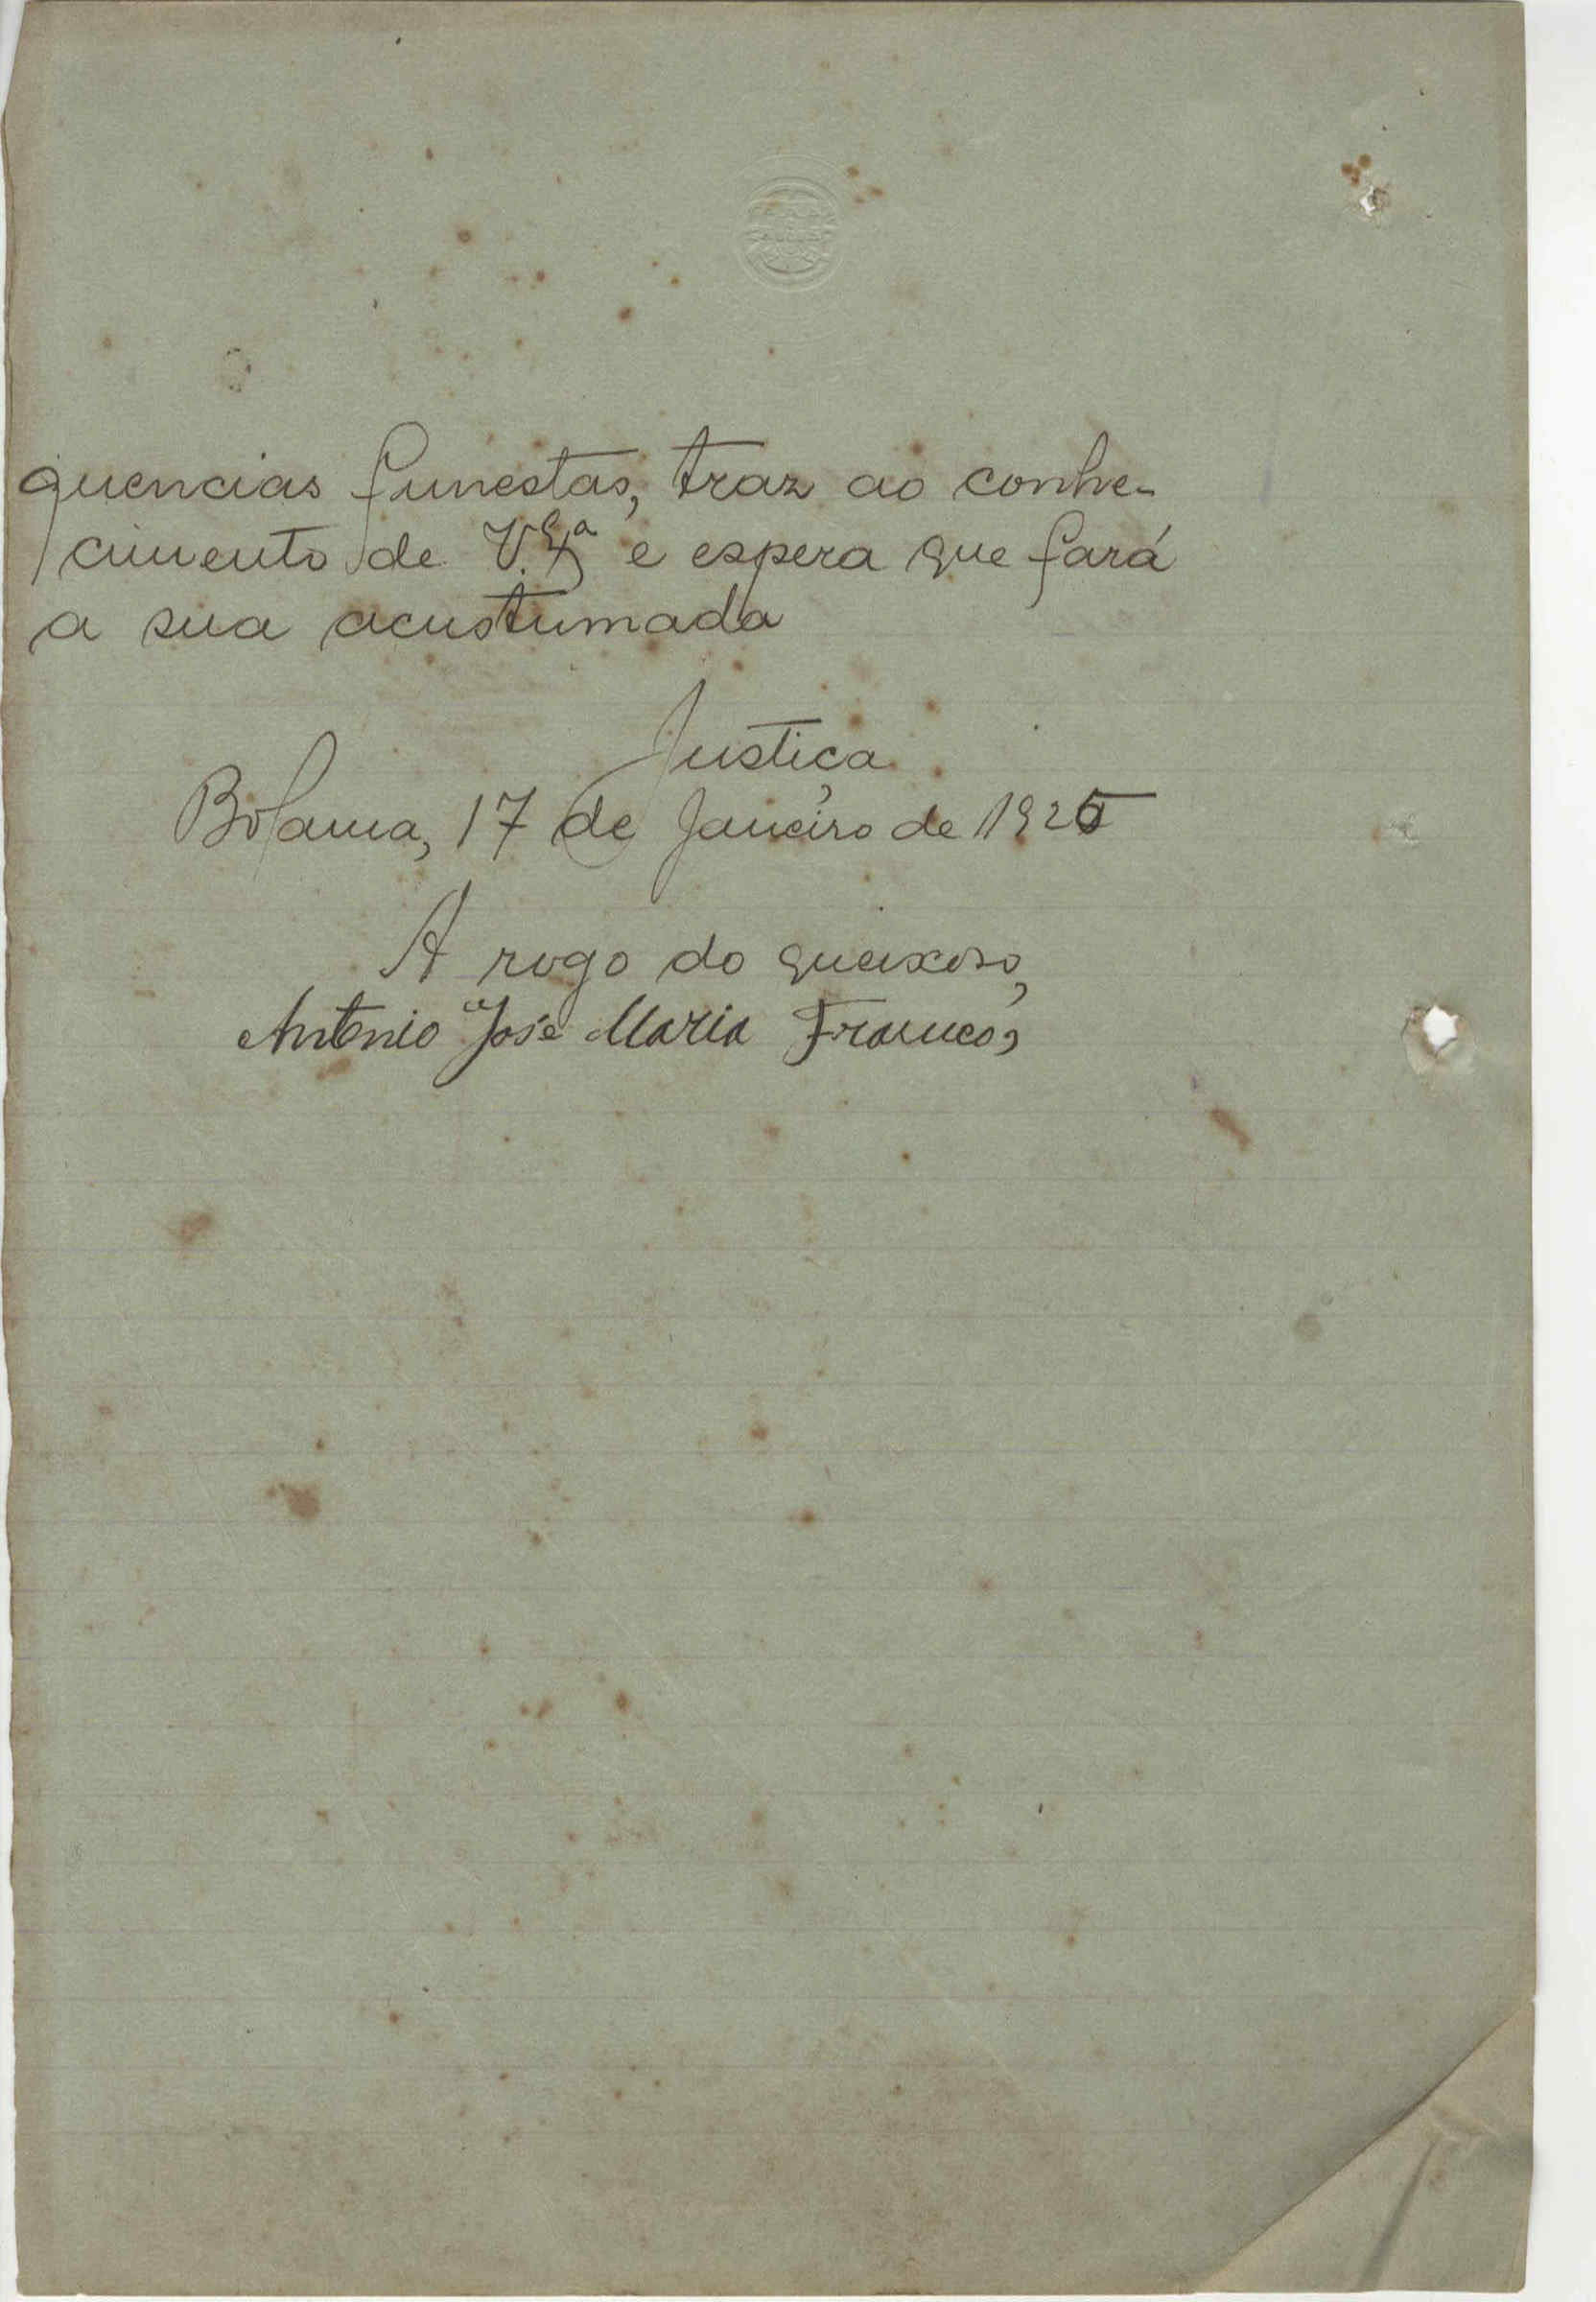 quencias funestas, traz ao conhe-
cimento de V. Exª e espera que fará
a sua acustumada
Justiça
Bolama, 17 de Janeiro de 1925
A rogo do queixoso,
Antonio José Maria Franco,